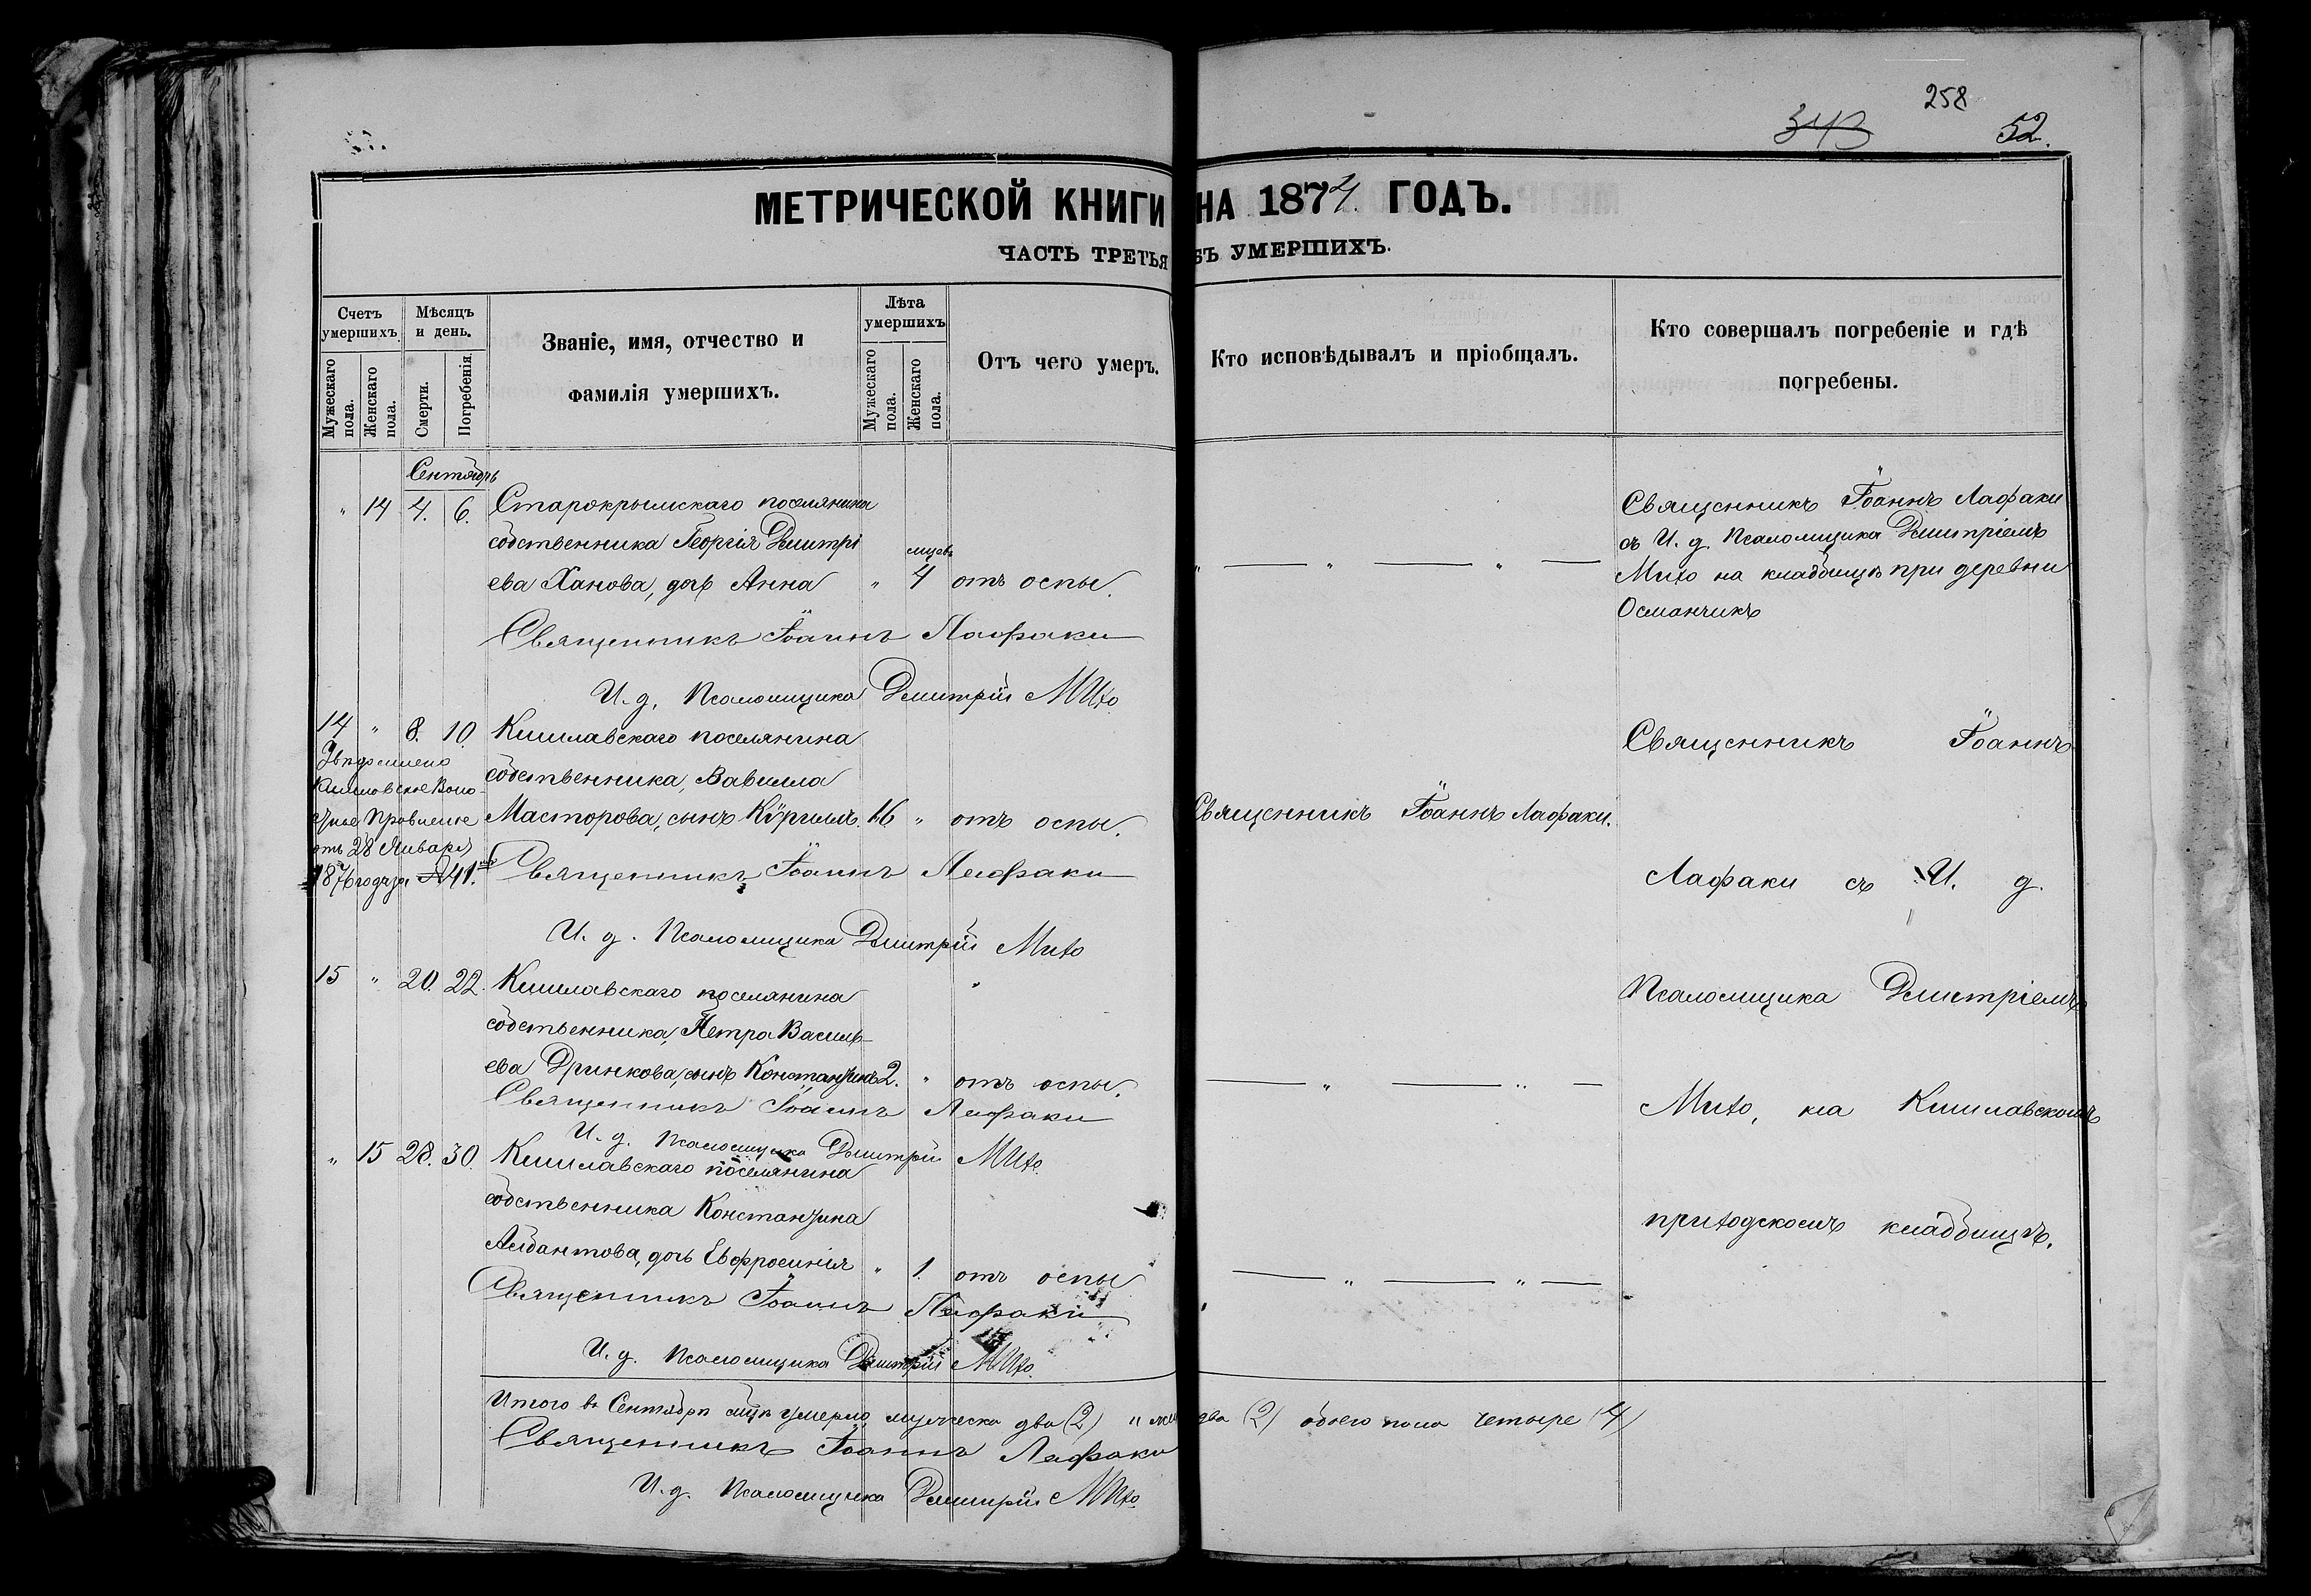 258
343
52.
МЕТРИЧЕСКОЙ КНИГИ НА 1874 ГОДЪ.
ЧАСТЬ ТРЕТЬЯ БЪ УМЕРШИХЪ.
Счетъ умершихъ.
Мужескаго пола.
Женскаго пола.
Мѣсяцъ и день.
Смерти.
Погребенія.
Званіе, имя, отчество и
фамилія умершихъ.
Лѣта умершихъ
Мужескаго пола.
Женскаго пола.
Отъ чего умеръ.
Кто исповѣдывалъ и пріобщалъ.
Кто совершалъ погребеніе и гдѣ
погребены.
Сентябрь
" 14 4. 6. Старокрымскаго поселянина
собственника Георгія Дмитрі
ева Ханова, дочь Анна " 4 мцевъ отъ оспы.
Священникъ Іоаннъ Лафаки
И. д. Псаломщика Дмитрій Михо
" — " — " —
Священникъ Іоаннъ Лафаки
съ И. д. Псаломщика Дмитріемъ
Михо на кладбищѣ при деревни
Османчикъ
14 " 8. 10. Кишлавскаго поселянина
собственника, Вавилла
Масторова, сынъ Кӱриллъ. 16 " отъ оспы.
Священникъ Іоаннъ Лафаки
И. д. Псаломщика Дмитрій Михо
Кишлавское Воло-
стное Правленіе
отъ 28 Января
1876 года за № 41.
Священникъ Іоаннъ Лафаки.
15 " 20. 22. Кишлавскаго поселянина
собственника, Петра Василь-
ева Дринкова, сынъ Константинъ 2. " отъ оспы.
Священникъ Іоаннъ Лафаки
И. д. Псаломщика Дмитрій Михо.
— " — " —
" 15 28. 30. Кишлавскаго поселянина
собственника Константина
Айдантова, дочь Евфросинія " 1. отъ оспы
Священникъ Іоаннъ Лафаки
И. д. Псаломщика Дмитрій Михо.
— " — " —
Священникъ Іоаннъ
Лафаки съ И. д.
Псаломщика Дмитріемъ
Михо, на Кишлавскомъ
приходскомъ кладбищѣ.
Итого въ Сентябрѣ мцѣ умерло мужеска два (2) " два (2) обоего пола четыре (4)
Священникъ Іоаннъ Лафаки
И. д. Псаломщика Дмитрій Михо.